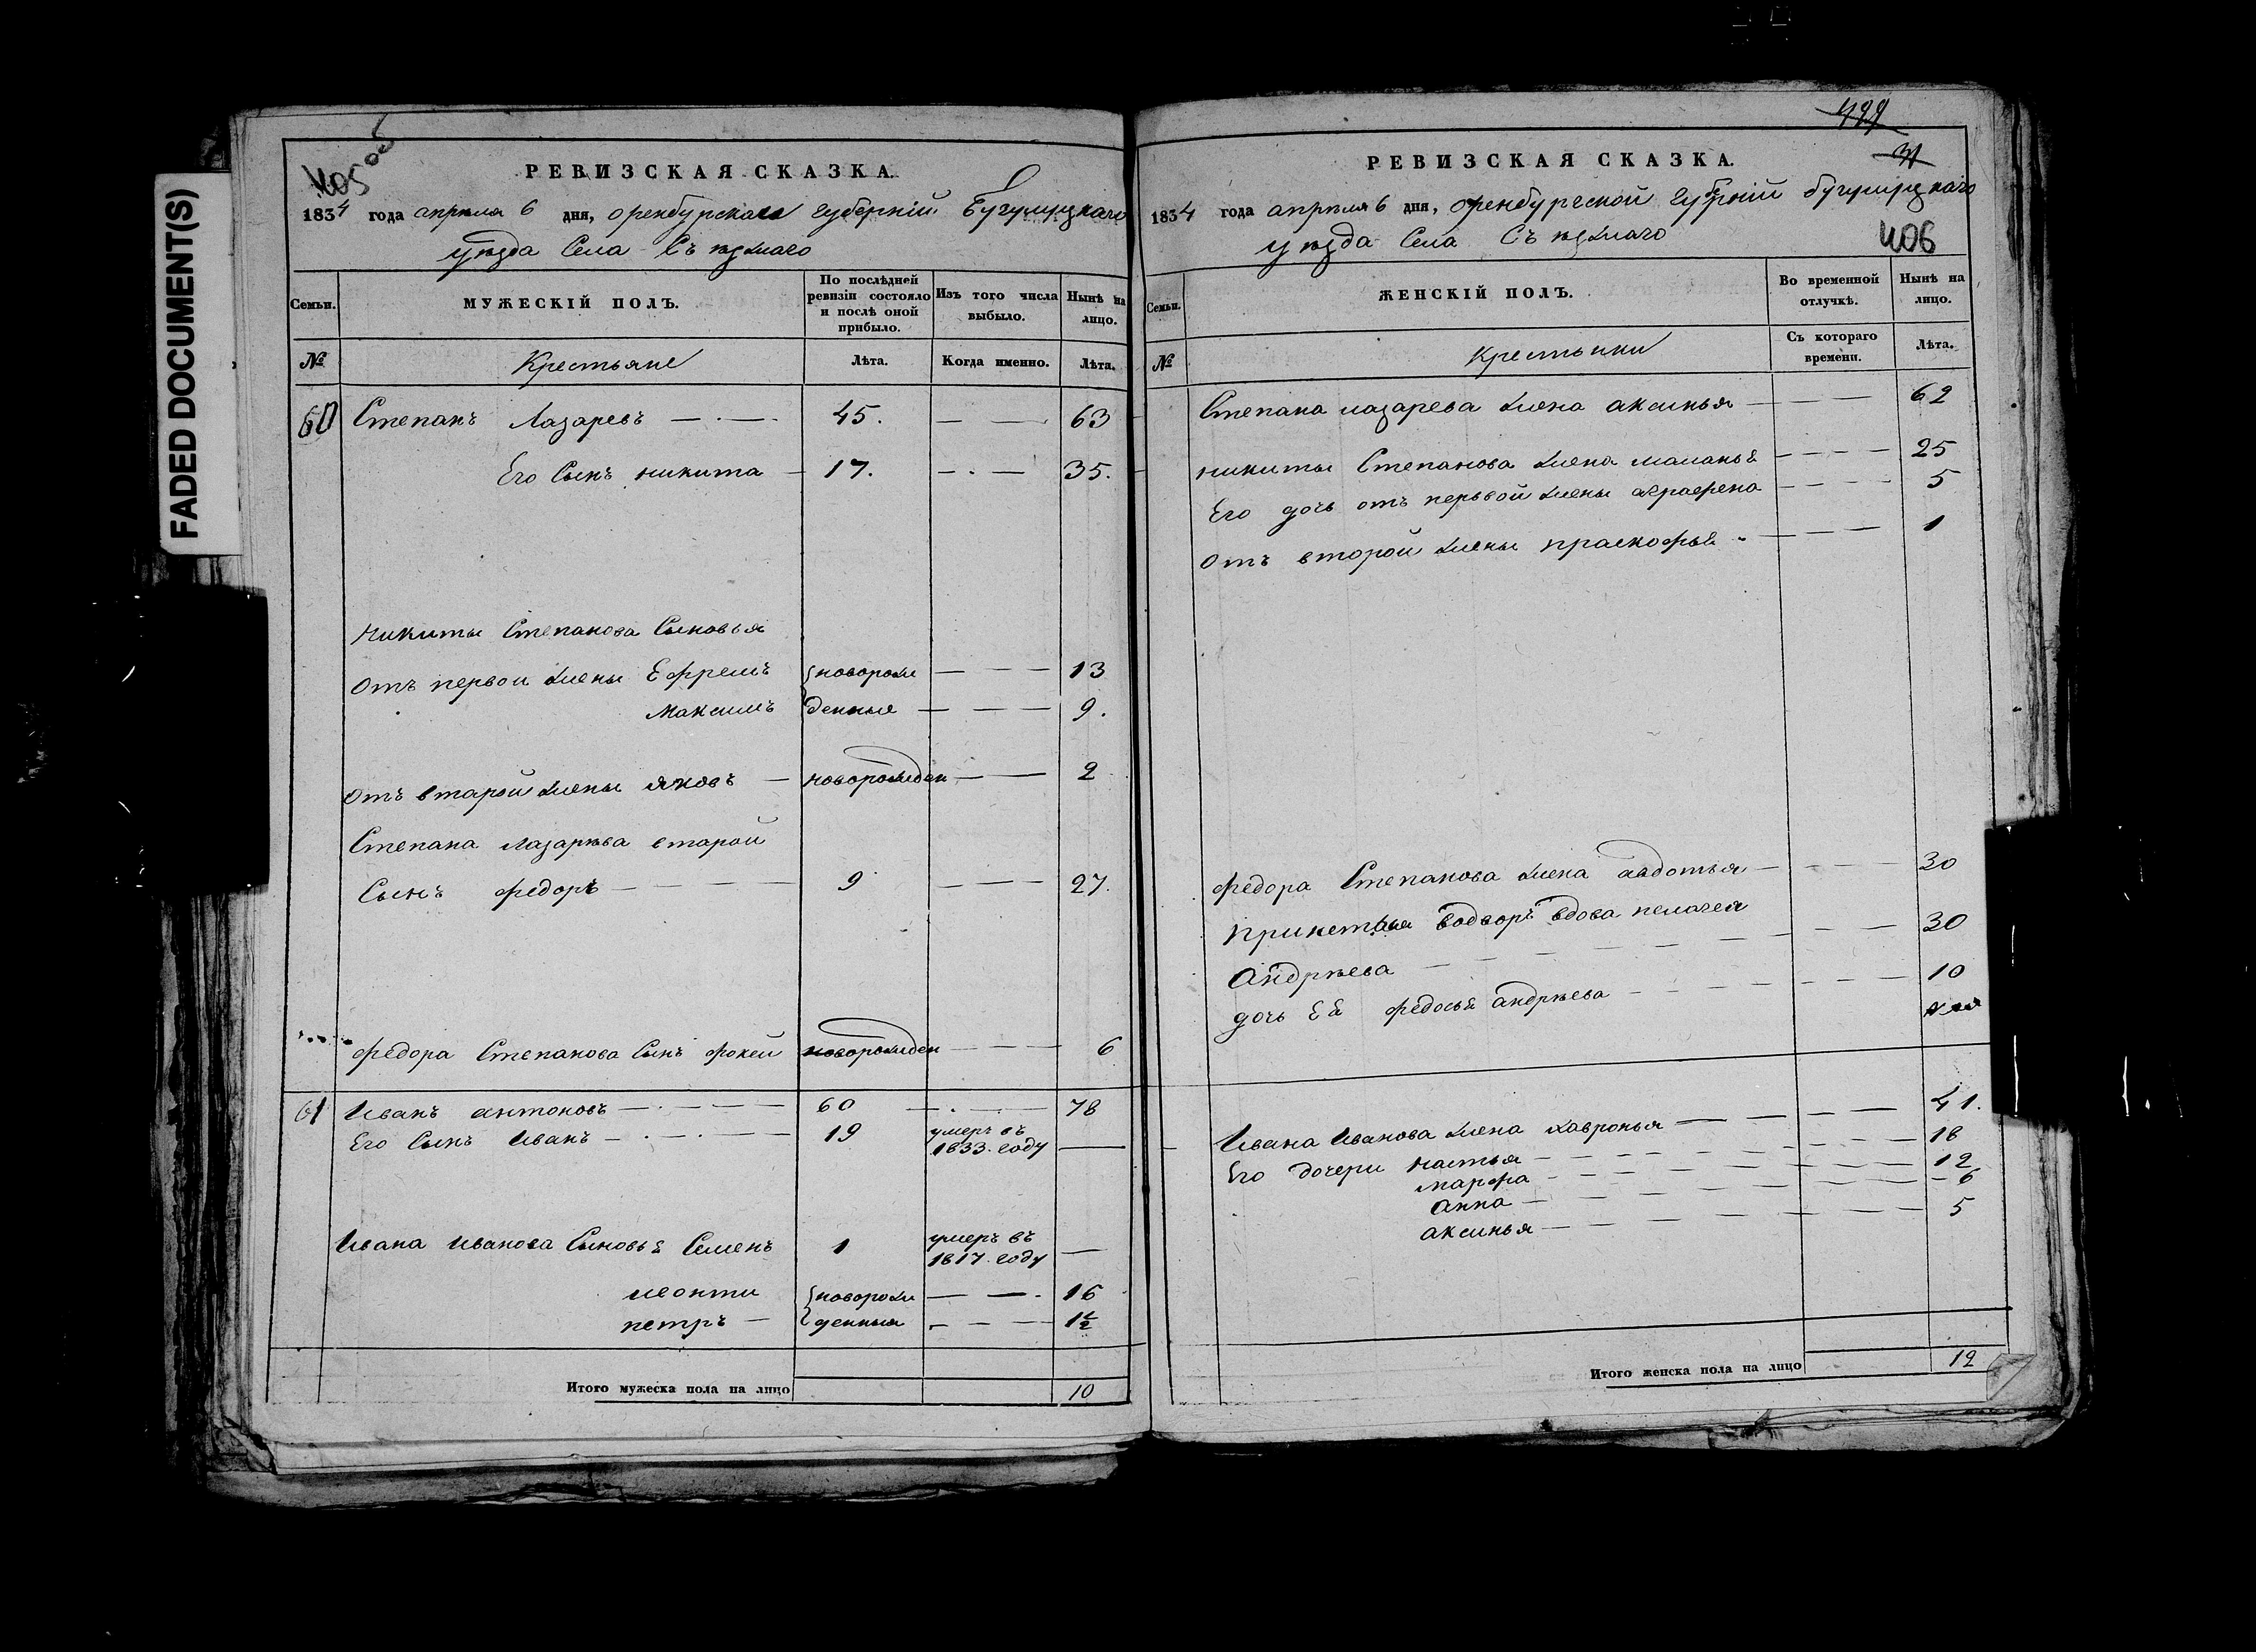 FADED DOCUMENT(S)
405 об
РЕВИЗСКАЯ СКАЗКА.
1834 года апреля 6 дня, оренбурскаго губерніи Бугулуцкаго
уѣзда Села Съѣзжаго
Семьи.
МУЖЕСКІЙ ПОЛЪ.
По послѣдней ревизіи состояло и послѣ оной прибыло.
Изъ того числа выбыло.
Нынѣ на лицо.
№
Крестьяне
Лѣта.
Когда именно.
Лѣта.
60 Степанъ Лазаревъ 45. 63
Его Сынъ никита 17. 35.
никиты Степанова Сыновья
отъ первой жены Ефремъ новорож 13
максимъ денныя 9.
отъ втарой жены яковъ новорожден 2
Степана лазарѣва втарой
Сынъ федоръ 9 27.
федора Степанова Сынъ фокей новорожден 6
61 Иванъ антоновъ 60 78
Его Сынъ Иванъ 19 умеръ въ 1833 году
Ивана иванова Сыновья Семенъ 1 умеръ въ 1817 году
леонти новорож 16
петръ денныя 1½
Итого мужеска пола на лицо 10
499
31
РЕВИЗСКАЯ СКАЗКА.
1834 года апрѣля 6 дня, оренбургской губрніи бугулуцкаго
уѣзда Села Съѣзжаго
406
Семьи.
ЖЕНСКІЙ ПОЛЪ.
Во временной отлучкѣ.
Нынѣ на лицо.
№
Крестьнки
Съ котораго времени.
Лѣта.
Степана лазарева жена аксинья 62
никиты Степанова жена маланья 25
Его дочь отъ первой жены аграфена 5
отъ второй жены прасковья 1
федора Степанова жена авдотья 30
принетая водворъ вдова пелагея
Андрѣева 30
дочь Её федосья андрѣева 10
Ивана Иванова жена хавронья 41.
Его дочери настья 18
марфа 12
анна 6
аксинья 5
Итого женска пола на лицо 12